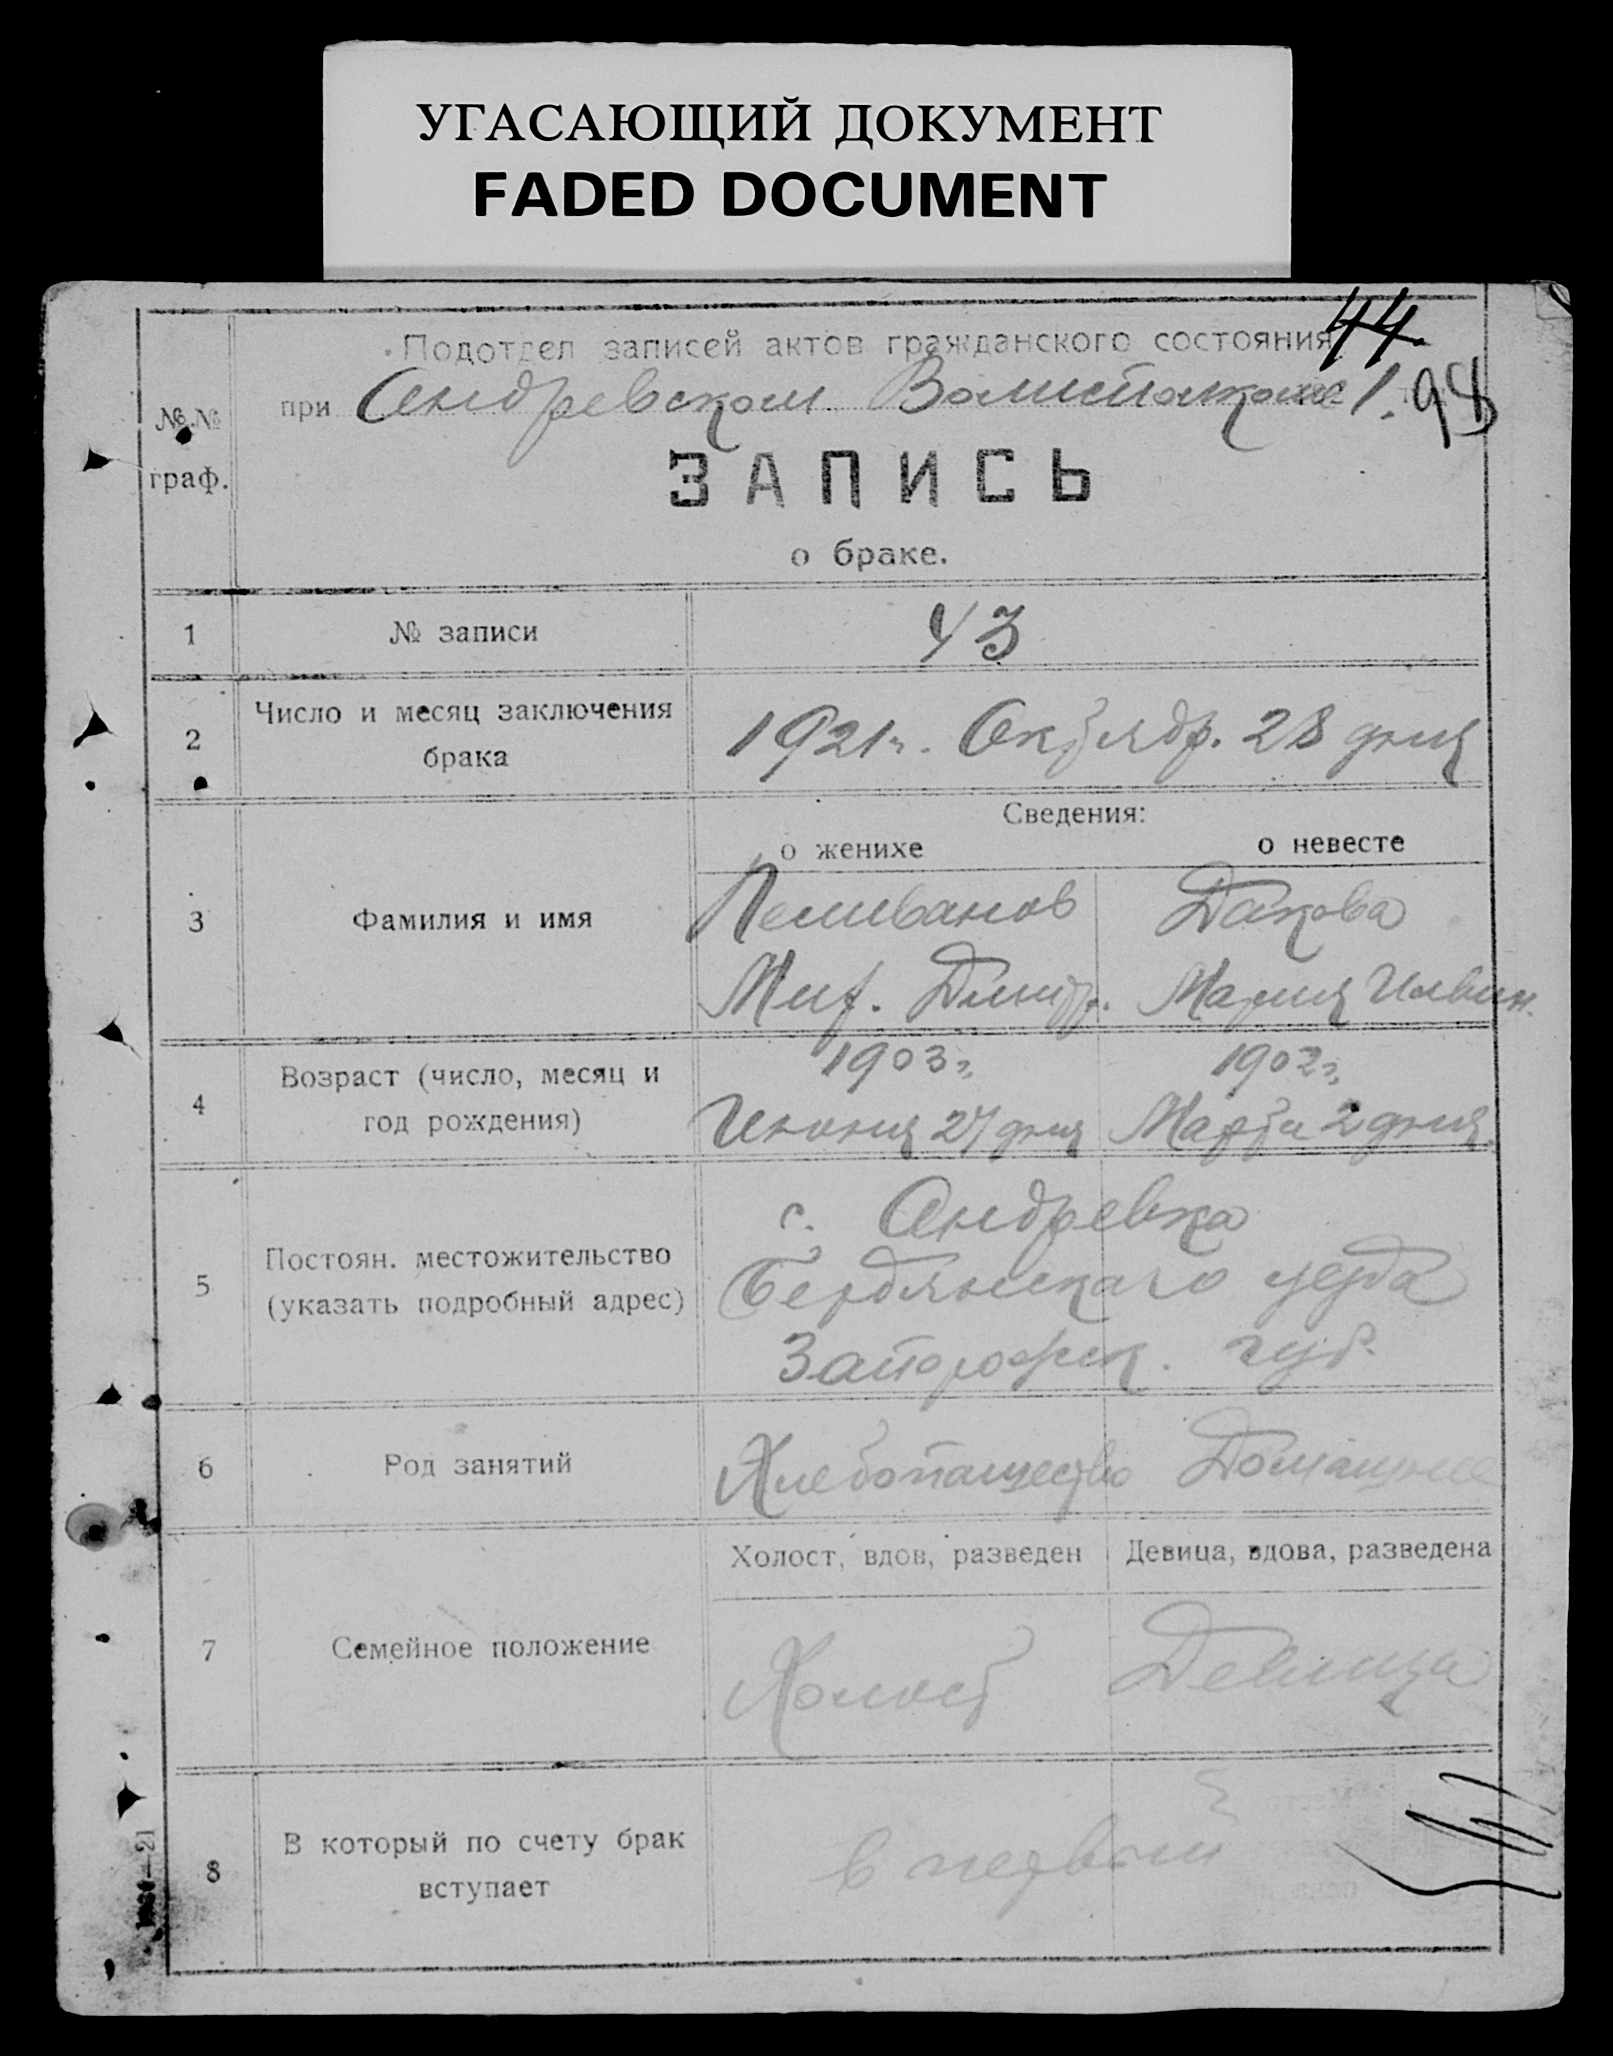 УГАСАЮЩИЙ ДОКУМЕНТ
FADED DOCUMENT
44.
Подотдел записей актов гражданского состояния
при Андревском
98
№№
граф.
ЗАПИСЬ
о браке.
1 № записи 43
2 Число и месяц заключения
брака
1921г. Октябр. 28 дня
Сведения:
о женихе о невесте
3 Фамилия и имя
Пеливанов Дакова
Миф. Дмитр. Мария
4 Возраст (число, месяц и
год рождения)
1903г. 1902г.
Июня 27 дня Марта 2 дня
5 Постоян. местожительство
(указать подробный адрес)
с. Андревка
Бердянскаго уезда
Запорожск. губ.
6 Род занятий
Хлебопашество Домашнее
7 Семейное положение
Холост, вдов, разведен Девица, вдова, разведена
Холост Девица
8 В который по счету брак
вступает
в первый